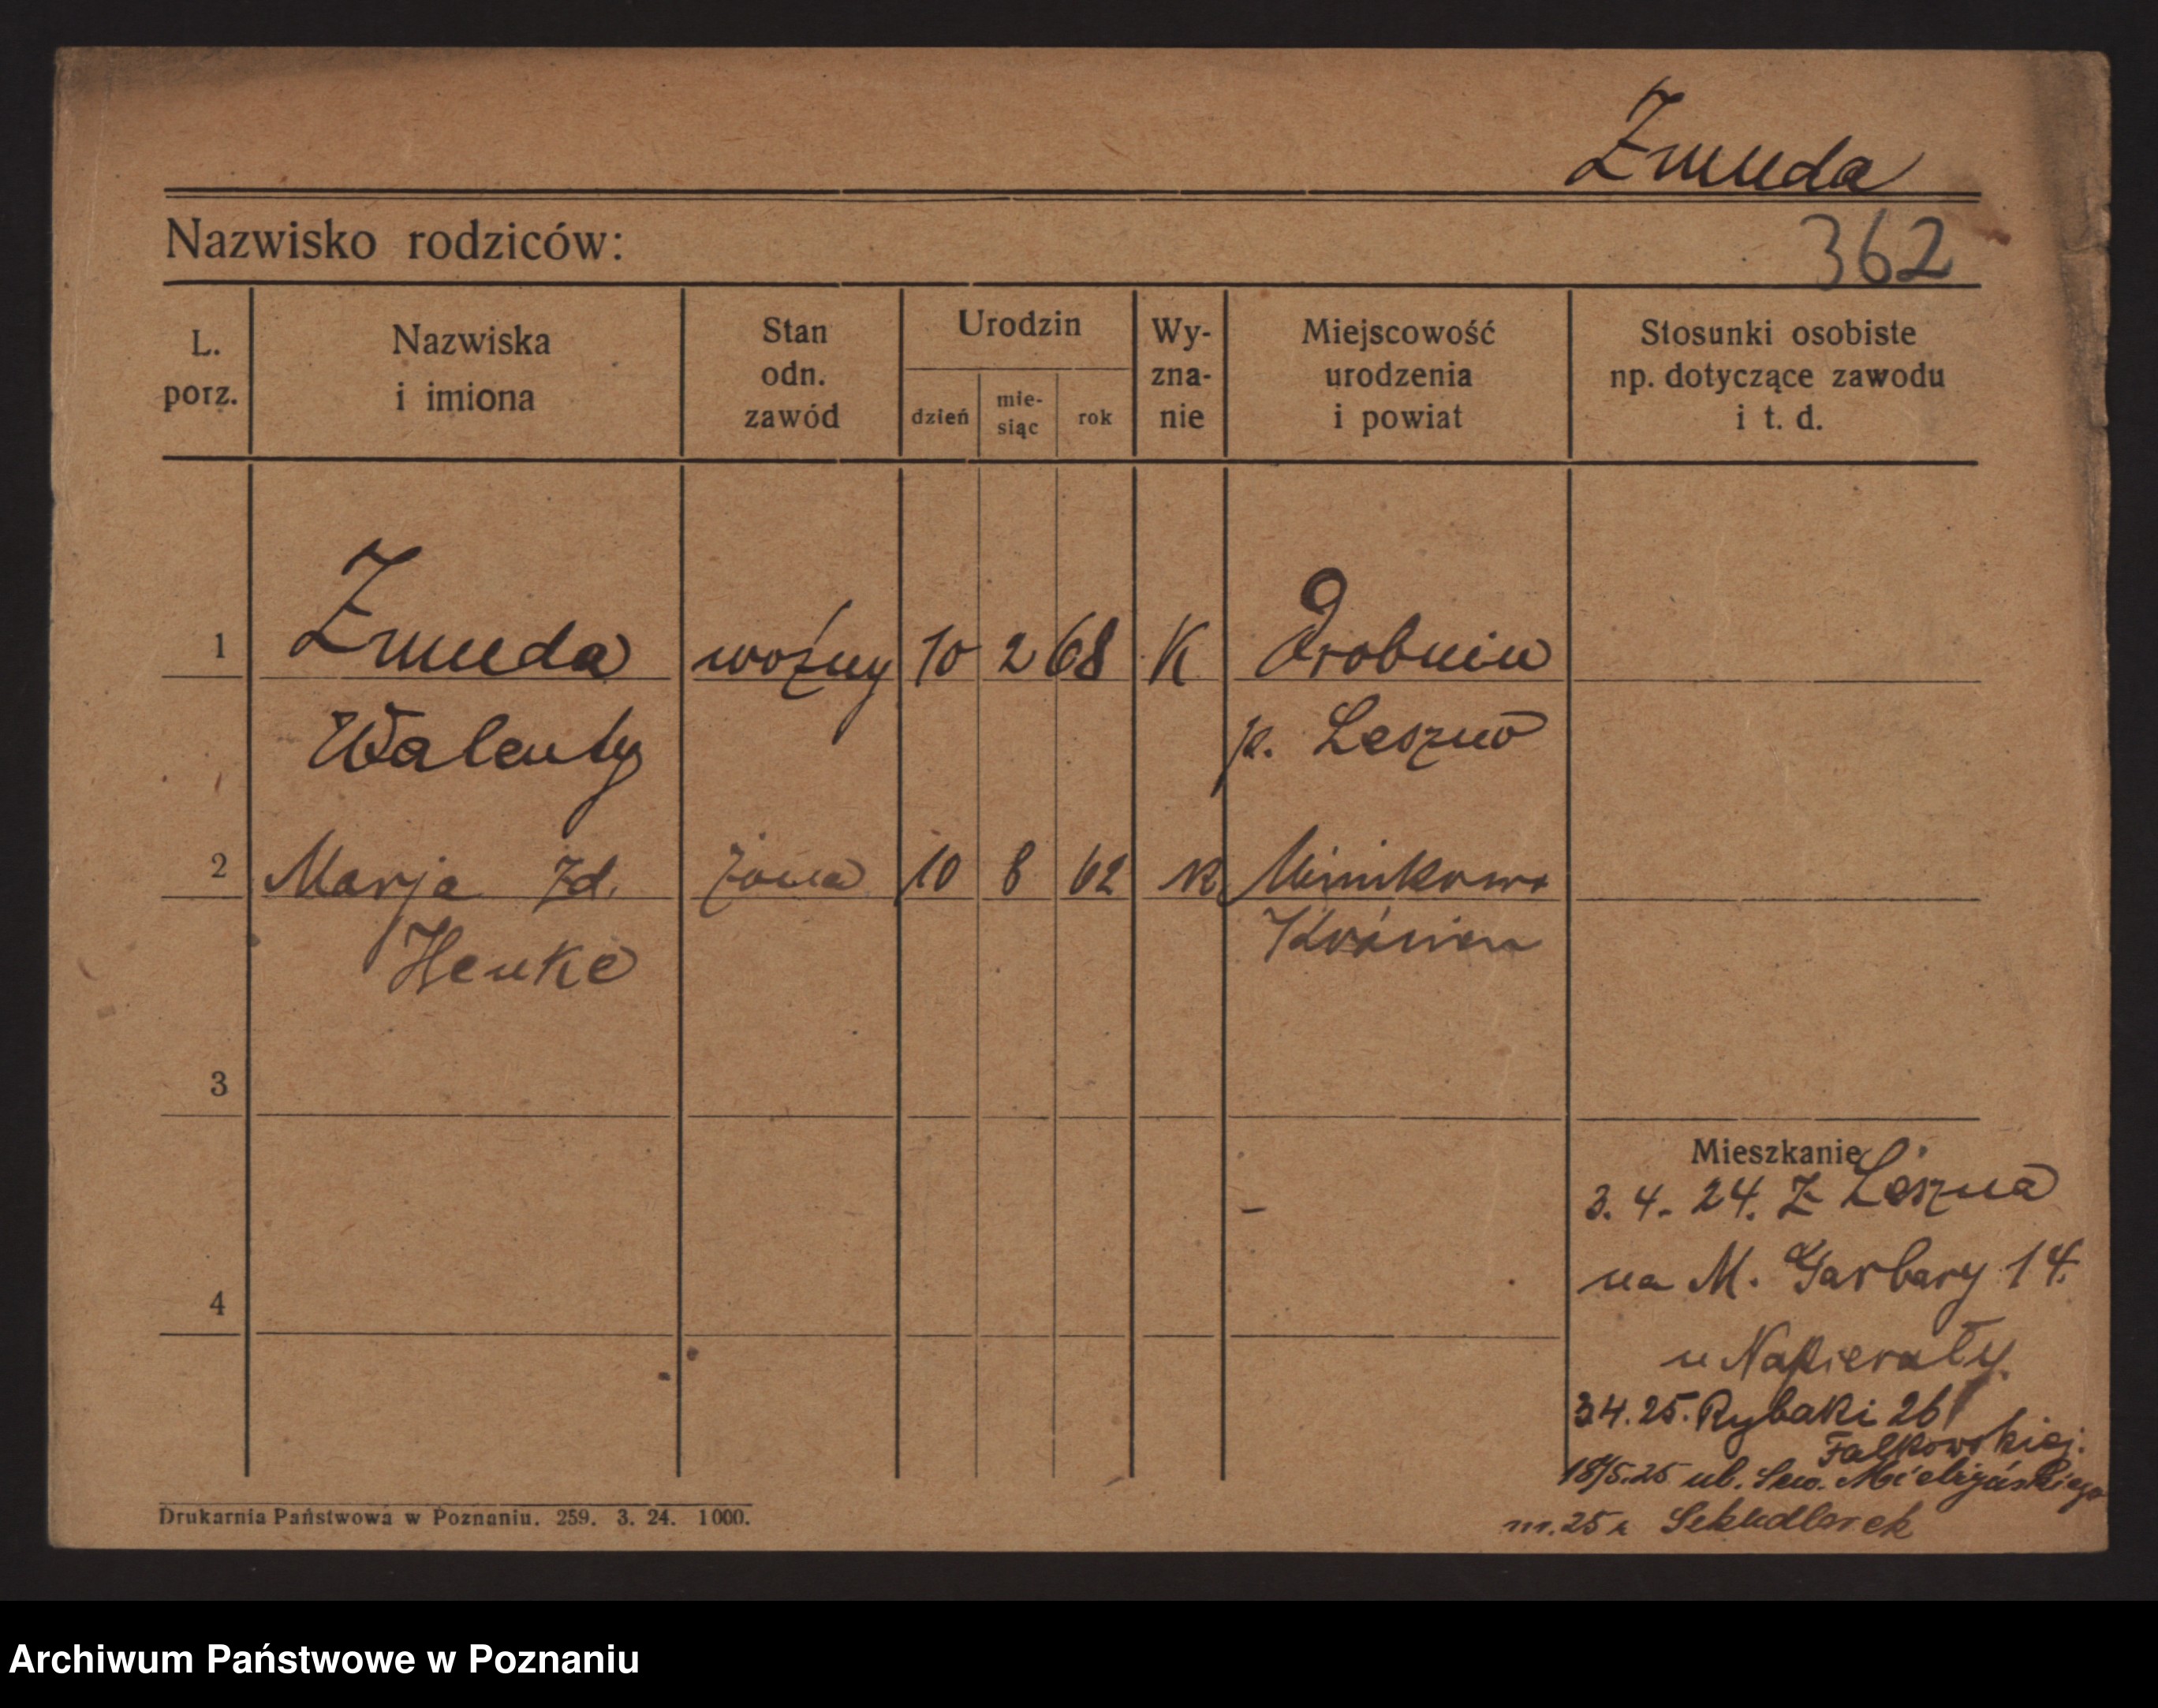 Żmuda
Nazwisko rodziców:
362
L. porz.
Nazwiska i imiona
Stan odn. zawód
Urodzin
dzień
mie-siąc
rok
Wy-zna-nie
Miejscowość urodzenia i powiat
Stosunki osobiste np. dotyczące zawodu i t. d.
1 Żmuda woźny 10 2 68 K Drobnin
Walenty p. Leszno
2 Marja zd. żona 10 8 62 K
Henke
3
4
Mieszkanie
3. 4. 24. Z Leszna
na M. Garbary 14.
u Napierały.
3.4.25. Rybaki 26
Falkowskiej.
18/5.25 ul. Sew. Mielżyńskiego
nr. 25 u
Drukarnia Państwowa w Poznaniu. 259. 3. 24. 1000.
Archiwum Państwowe w Poznaniu